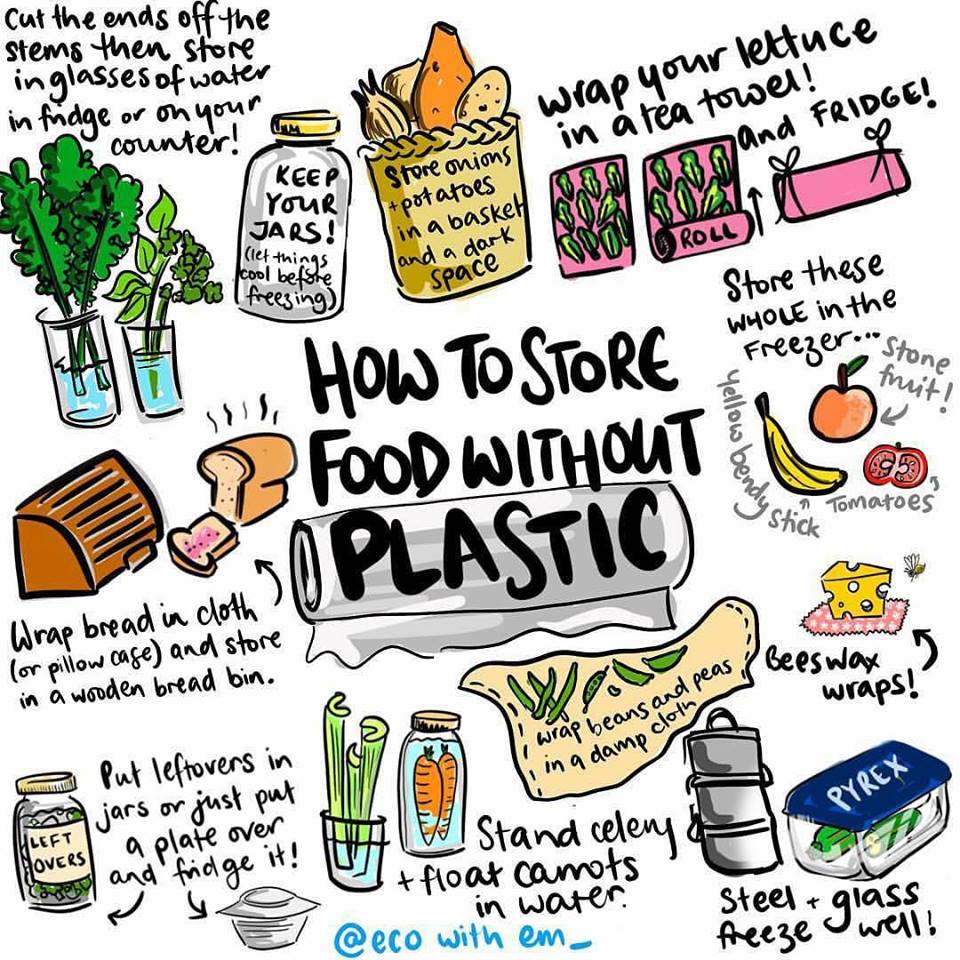 Cut the ends off the
stems then store
in glasses of water
in fridge or on your
counter!
KEEP
YOUR
JARS!
(let things
cool before
freezing)
Store onions
+ potatoes
in a basket
and a dark
space
wrap your lettuce
in a tea towel!
and FRIDGE!
ROLL
Store these
WHOLE in the
Freezer...
Stone
fruit!
yellow bendy
stick
Tomatoes
HOW TO STORE
FOOD WITHOUT
PLASTIC
Wrap bread in cloth
(or pillow case) and store
in a wooden bread bin.
Beeswax
wraps!
wrap beans and peas
in a damp cloth
Put leftovers in
jars or just put
a plate over
and fridge it!
LEFT
OVERS
Stand celery
+ float carrots
in water.
PYREX
Steel + glass
freeze well!
@eco with em_